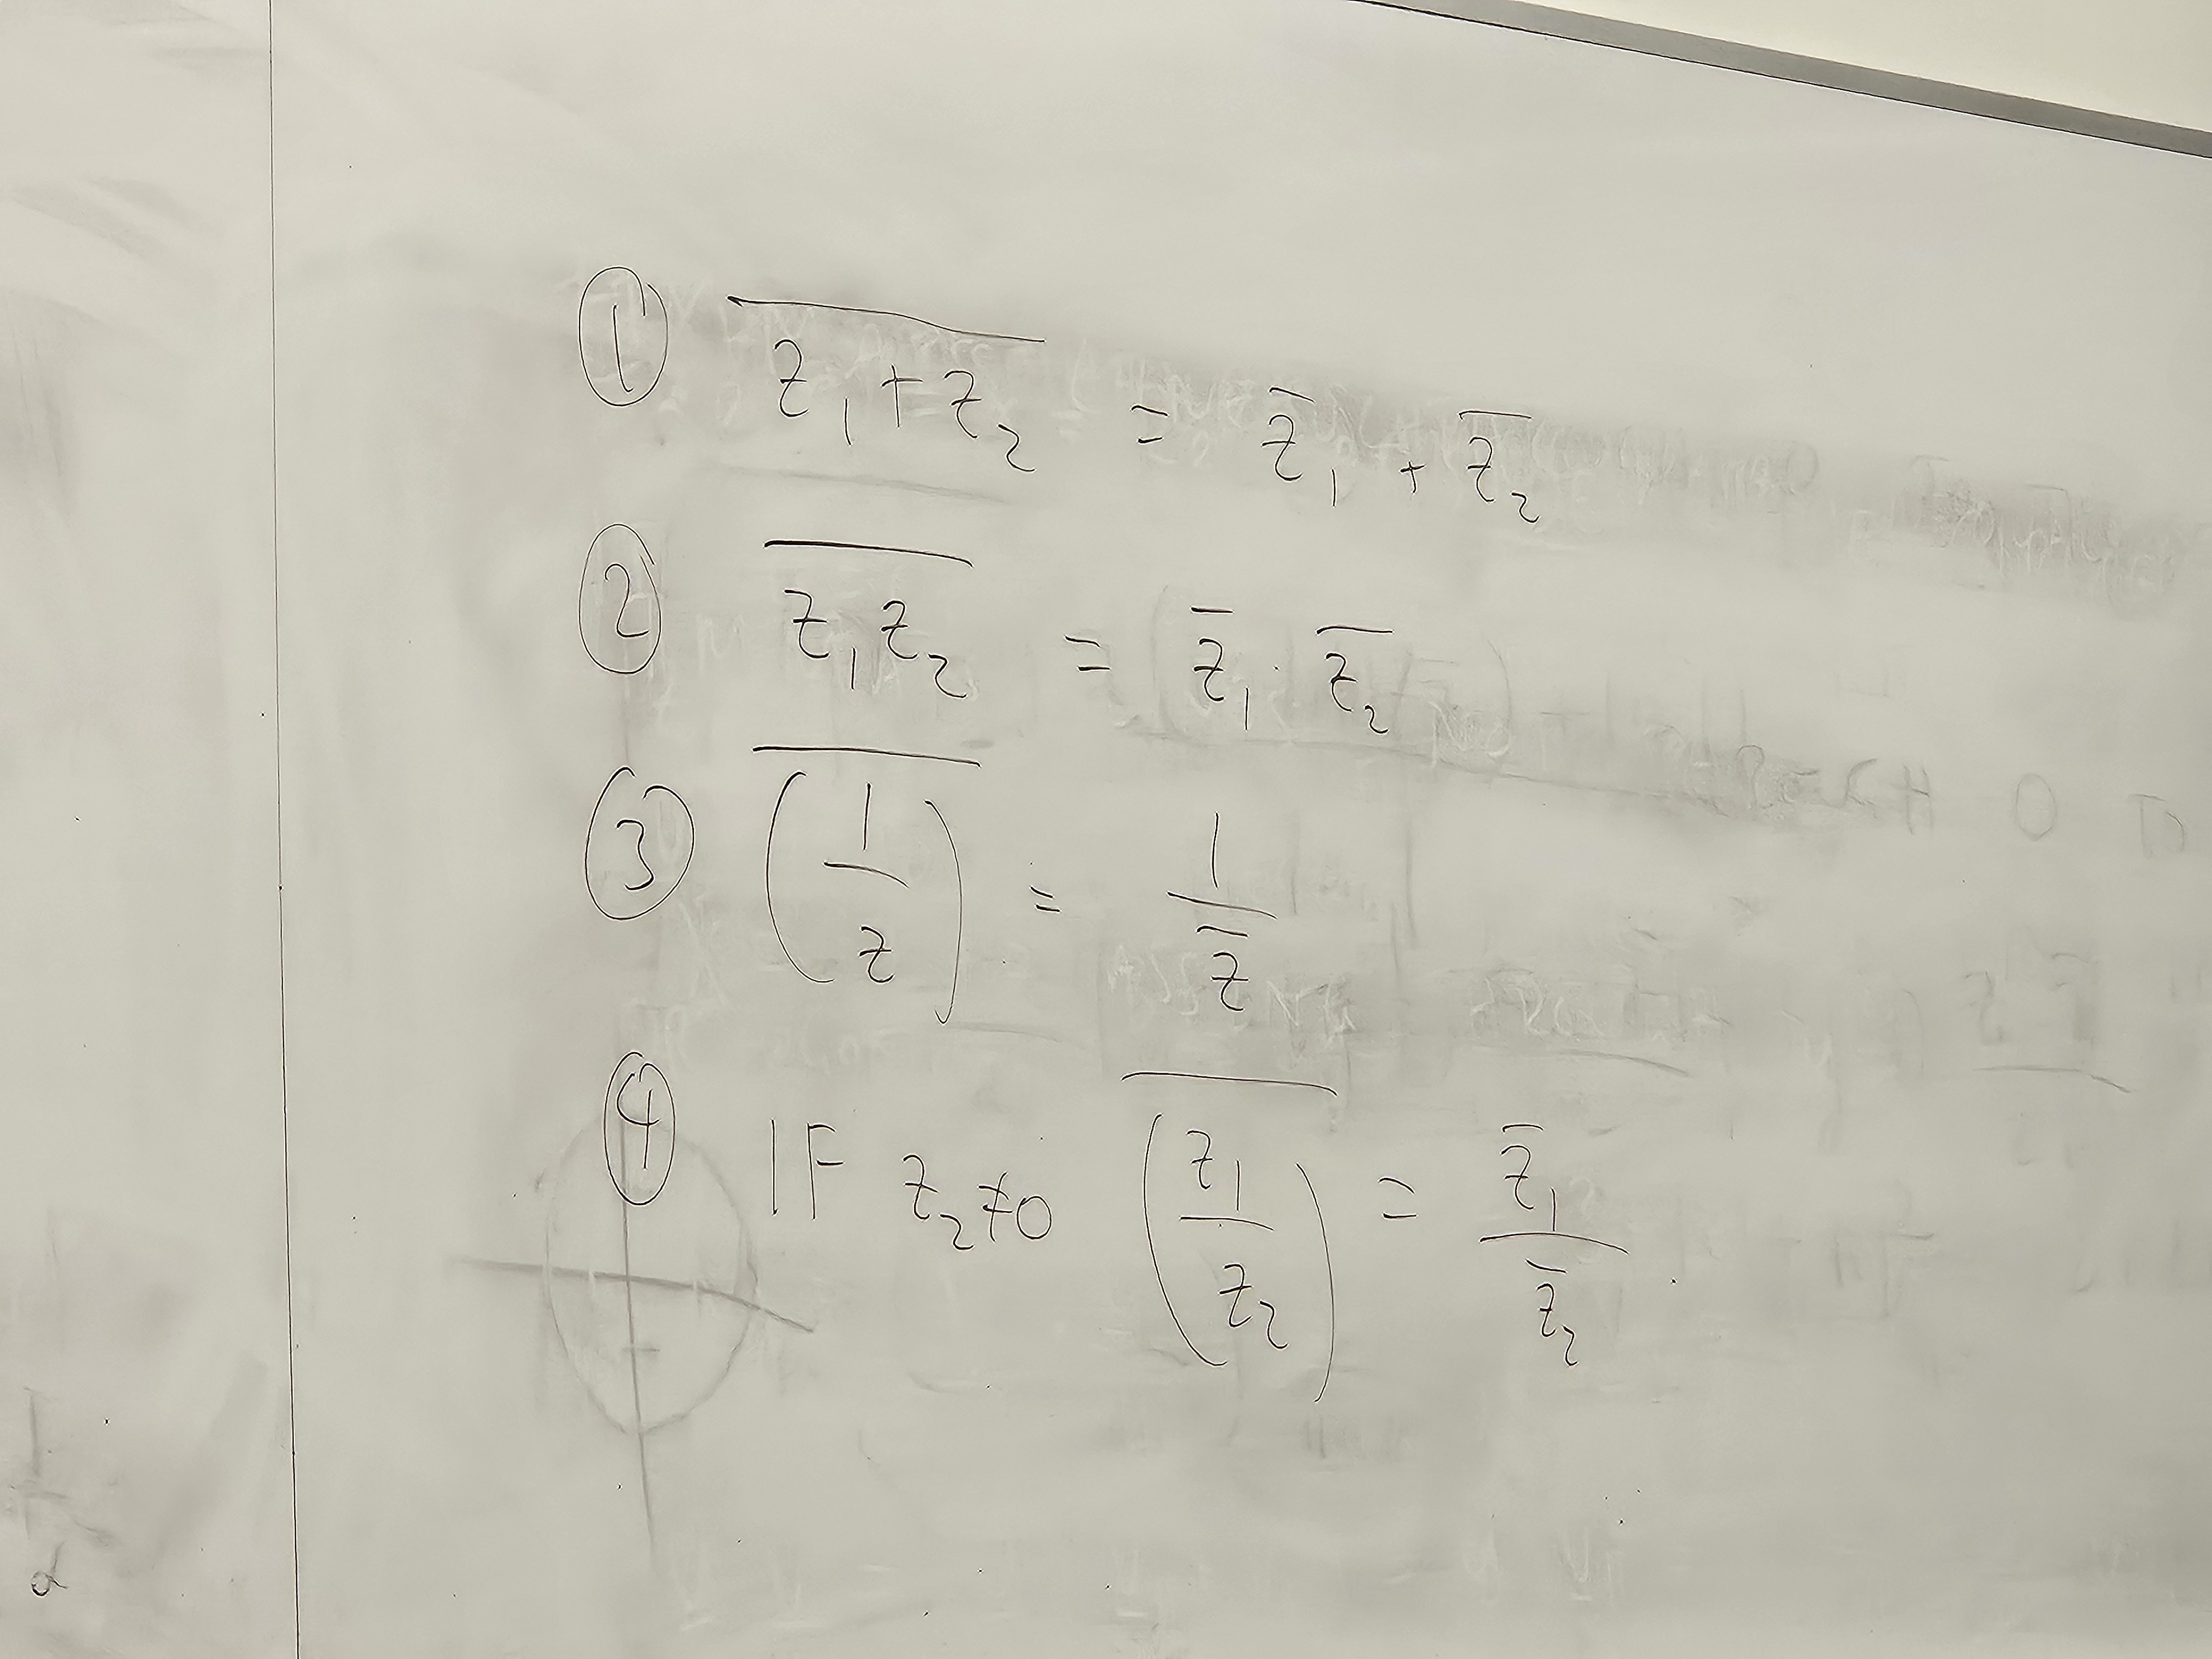 ① \overline{z₁ + z₂} = z̄₁ + z̄₂
② \overline{z₁ z₂} = z̄₁ · z̄₂
③ \overline{(1/z)} = 1/z̄
④ IF z₂ ≠ 0 \overline{(z₁/z₂)} = z̄₁/z̄₂